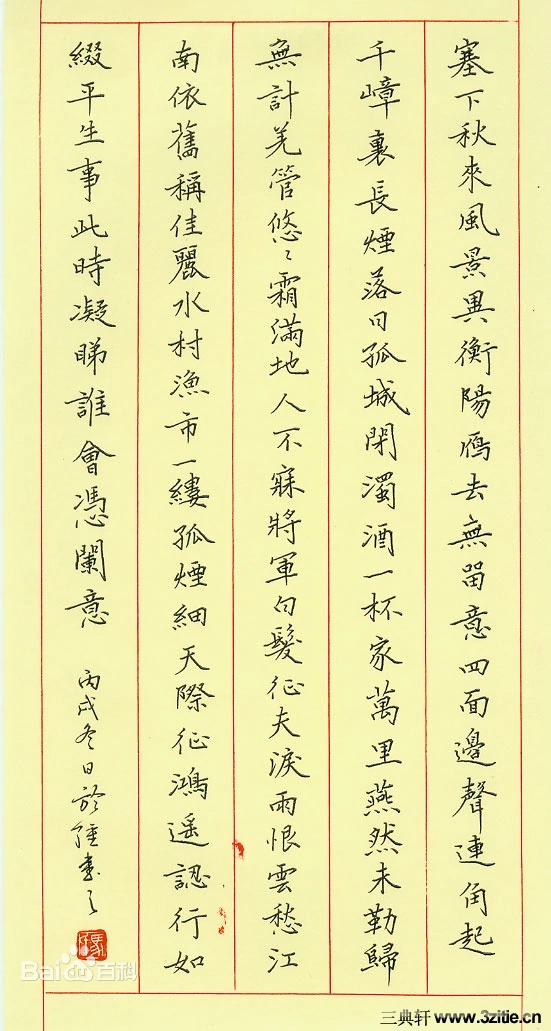 塞下秋來風景異衡陽鴈去無留意四面邊聲連角起
千嶂裏長煙落日孤城閉濁酒一杯家萬里燕然未勒歸
無計羌管悠〻霜滿地人不寐將軍白髮征夫淚雨恨雲愁江
南依舊稱佳麗水村漁市一縷孤煙細天際征鴻遥認行如
綴平生事此時凝睇誰會憑闌意
丙戌冬日於
Bai 百科
三典轩 www.3zitie.cn